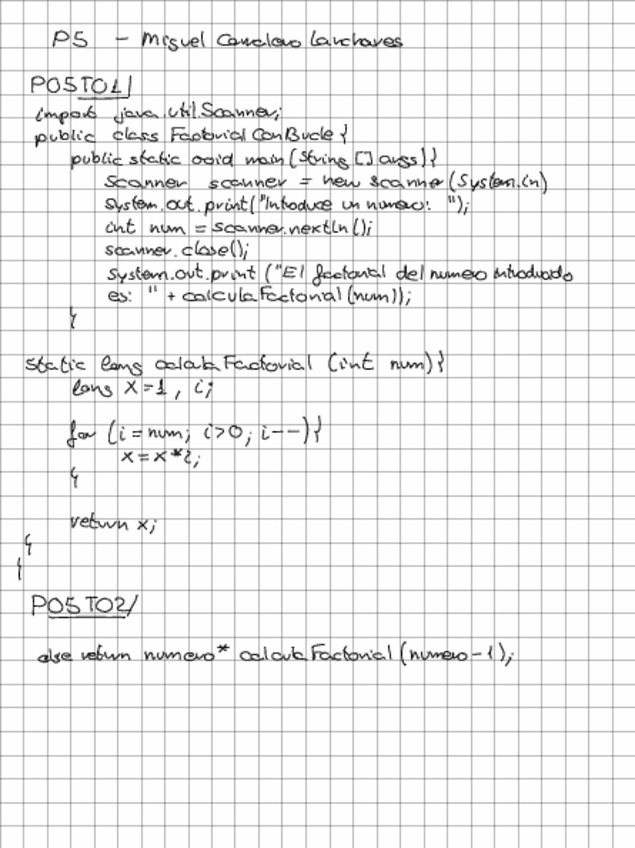 P5 - Miguel
P05T01/
import java.util.Scanner;
public class FactorialConBucle {
public static void main(String [] args){
Scanner scanner = new Scanner(System.in)
System.out.print("Intoduce un numero: ");
int num = scanner.nextIn();
scanner.close();
System.out.print ("El factorial del numero introducido
es: " + calculaFactorial(num));
}
static long calculaFactorial (int num){
long x=1, i;
for (i=num; i>0; i--){
x=x*i;
}
return x;
}
}
P05T02/
else return numero* calculaFactorial(numero-1);